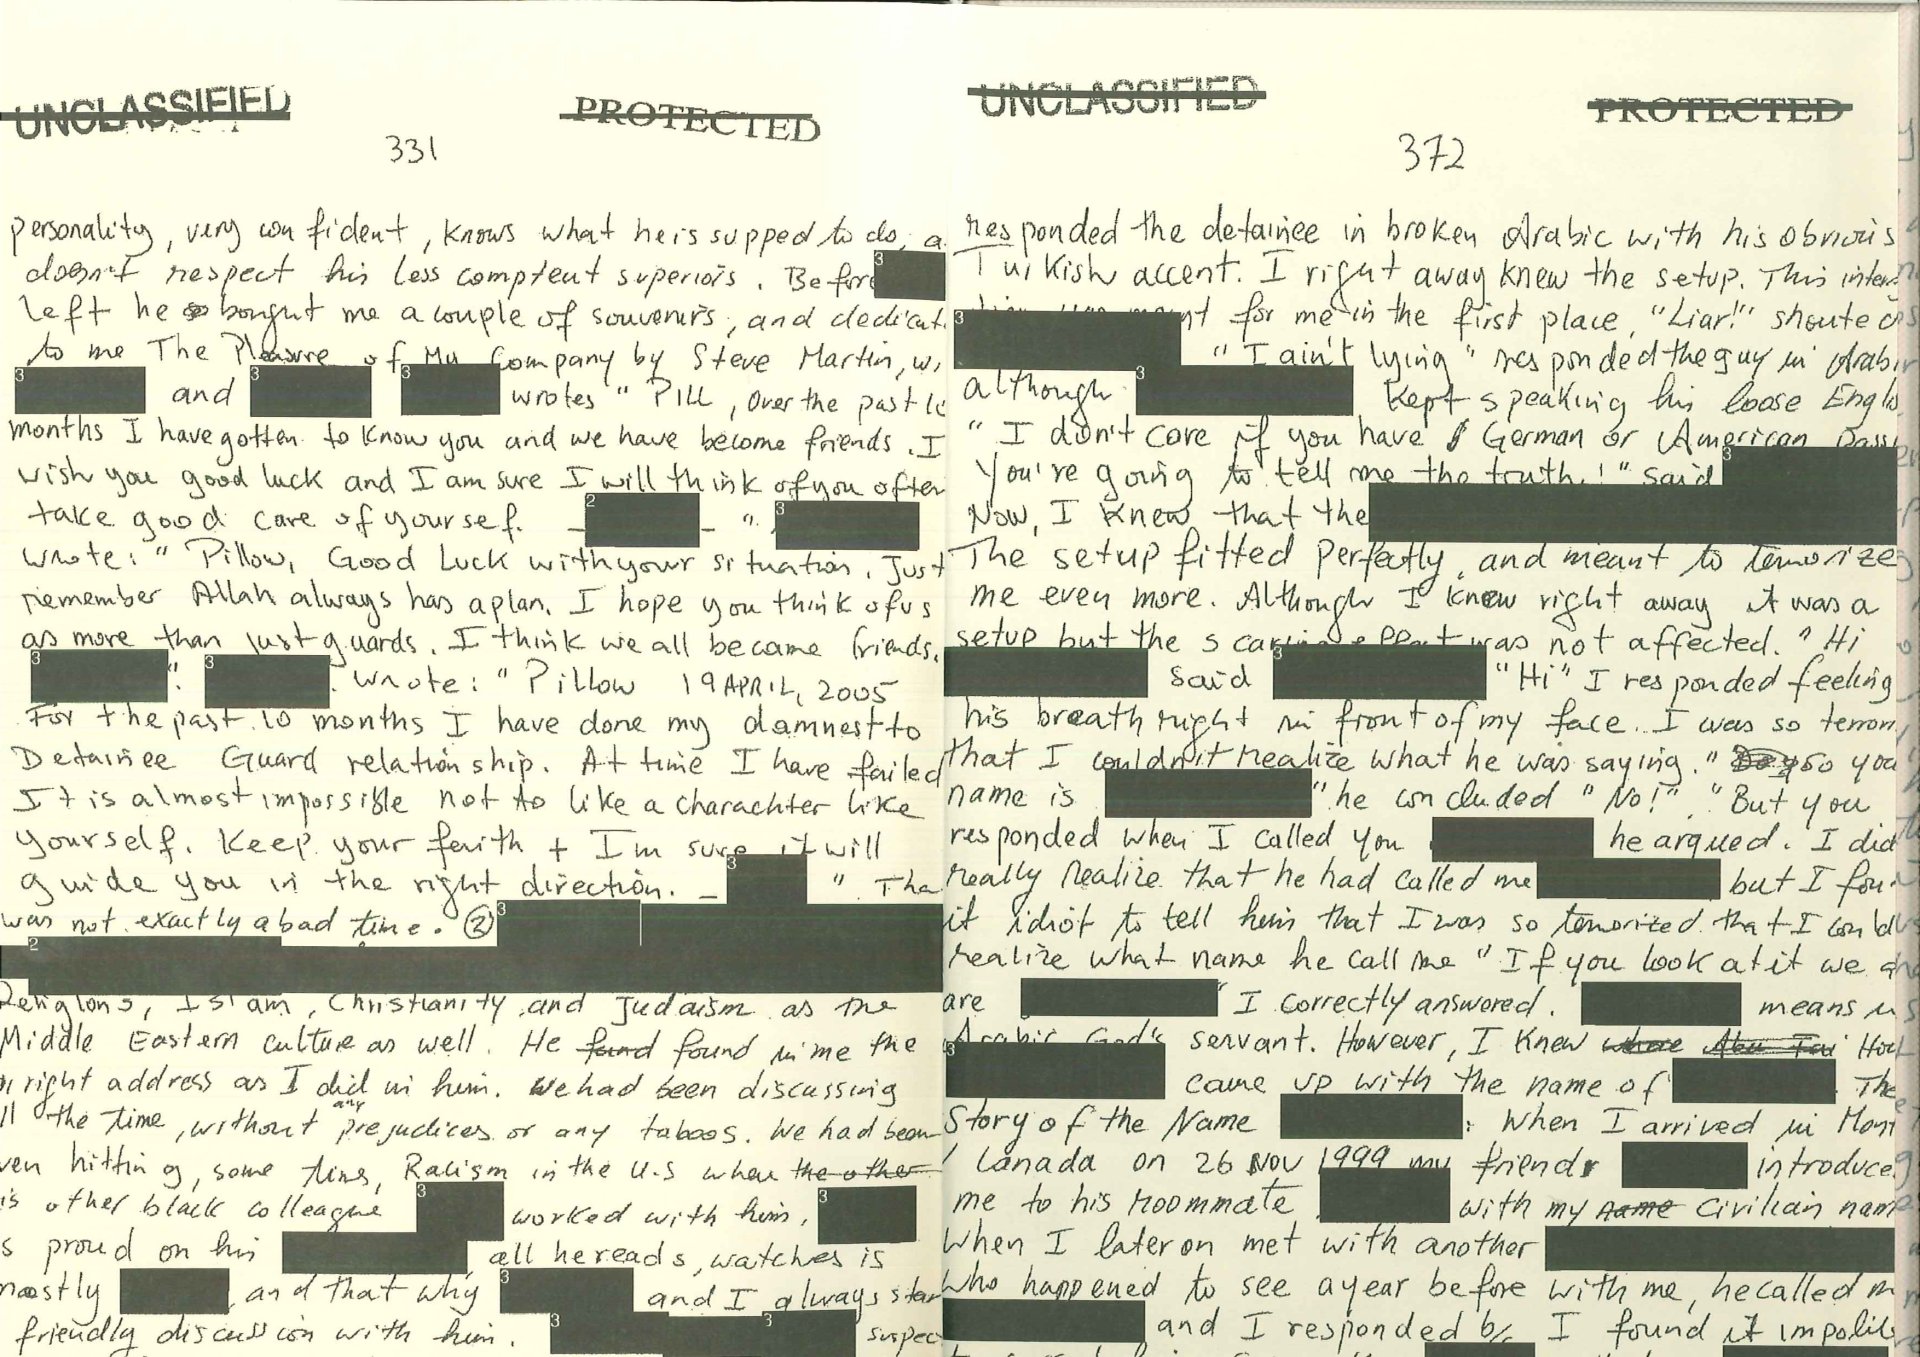 UNCLASSIFIED PROTECTED
331
personality, very confident, knows what he is supped to do, a
doesn't respect his less comptent superiors. Before
left he bought me a couple of souvenirs, and dedicat
to me The Pleasure of My Company by Steve Martin, wi
3 and 3 3 wrotes " PILL, Over the past
months I have gotten to know you and we have become friends. I
wish you good luck and I am sure I will think of you often
take good care of yoursef. _ 2 _ ". 3
wrote: " Pillow, Good Luck with your situation. Just
remember Allah always has a plan. I hope you think of us
as more than just guards. I think we all became friends.
3 ". 3 . wrote: " Pillow 19 APRIL, 2005
For the past 10 months I have done my damnest to
Detainee Guard relationship. At time I have failed
It is almost impossible not to like a charachter like
yourself. Keep your faith + I'm sure it will
guide you in the right direction. _ 3 " Tha
was not exactly a bad time. ② 3
2
Religions, Islam, Christianity, and Judaism as the
Middle Eastern culture as well. He fand found in me the
right address as I did in him. We had been discussing
ll the time, without any prejudices or any taboos. We had been
ven hitting, some time, Racism in the U.S when the other
is other black colleague 3 worked with him. 3
s proud on his all he reads, watches is
mostly , and that why 3 and I always star
friendly discussion with him. 3 3 suspec
UNCLASSIFIED PROTECTED
372
responded the detainee in broken Arabic with his obvious
Turkish accent. I right away knew the setup. This inter
3 meant for me in the first place, "Liar!" shoute
"I ain't lying" responded the guy in Arab
although 3 Kept speaking his loose Engl
" I don't care if you have German or American pass
You're going to tell me the truth!" said 3
Now, I knew that the
The setup fitted perfectly, and meant to terrorize
me even more. Although I knew right away it was a
setup but the scaring effect was not affected. " Hi
said 3 "Hi" I responded feeling
his breath right in front of my face. I was so terrori
that I couldn't realize what he was saying. " So you
name is " he concluded "No!". "But you
responded when I called you he argued. I did
really realize that he had called me but I foun
it idiot to tell him that I was so terrorized that I could
realize what name he call me "If you look at it we a
are " I correctly answered. means in
Arabic God's servant. However, I knew where Abu How
3 came up with the name of . The
Story of the Name : When I arrived in Mont
Canada on 26 Nov 1999 my friend introduce
me to his roommate with my name civilian nam
When I later on met with another
who happened to see a year before with me, he called m
and I responded b/c I found it impolit